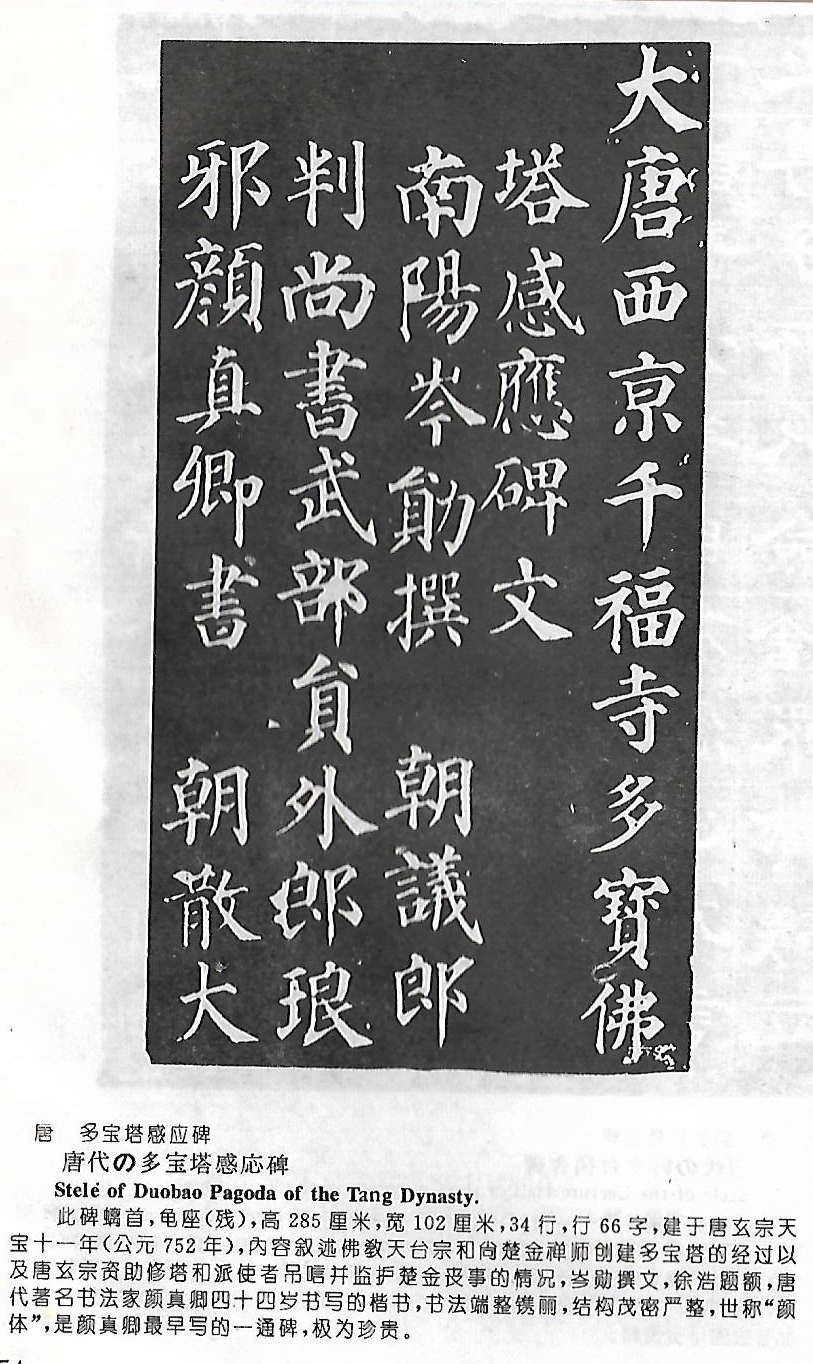 大唐西京千福寺多寶佛
塔感應碑文
南陽岑勛撰 朝議郎
判尚書武部員外郎琅
邪顏真卿書 朝散大
唐 多宝塔感应碑
唐代の多宝塔感応碑
Stele of Duobao Pagoda of the Tang Dynasty.
此碑螭首,龟座(残),高285厘米,宽102厘米,34行,行66字,建于唐玄宗天
宝十一年(公元752年),内容叙述佛教天台宗和尚楚金禅师创建多宝塔的经过以
及唐玄宗资助修塔和派使者吊唁并监护楚金丧事的情况,岑勋撰文,徐浩题额,唐
代著名书法家颜真卿四十四岁书写的楷书,书法端整镌丽,结构茂密严整,世称“颜
体”,是颜真卿最早写的一通碑,极为珍贵。